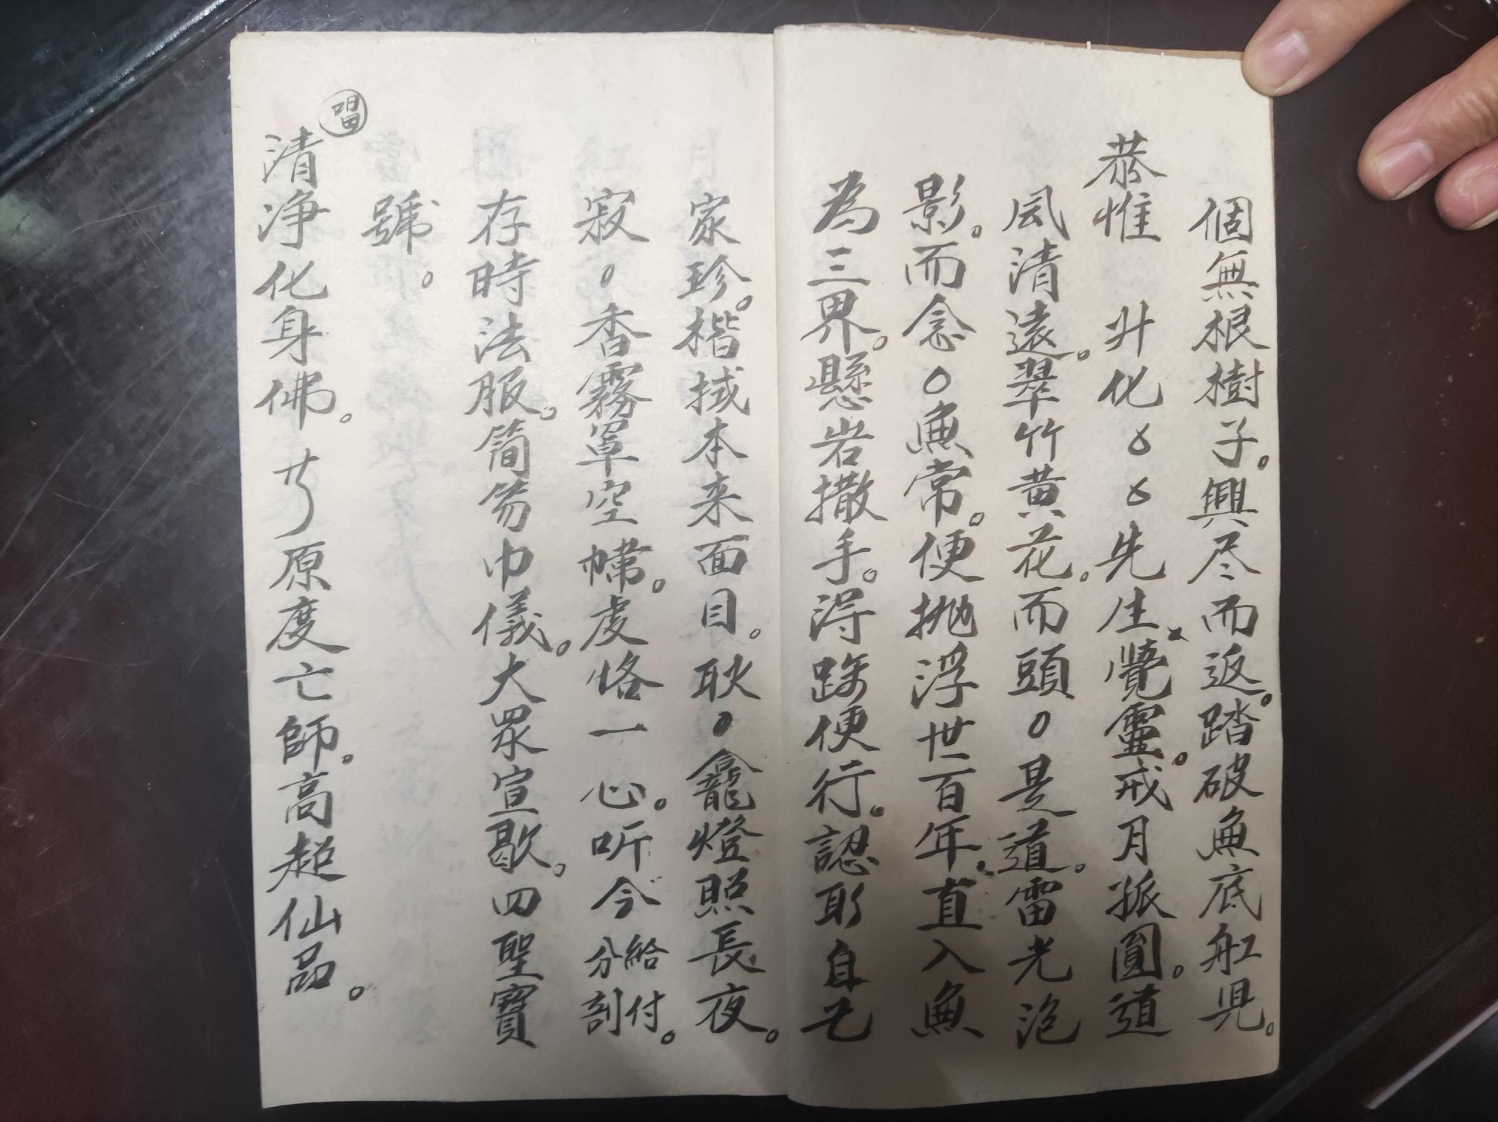 個無根樹子。興尽而返。踏破無底舡児。
恭惟 升化〻〻先生覺靈。戒月孤圓。道
風清遠。翠竹黄花。而頭〇是道。雷光泡
影。而念〇無常。便抛浮世百年。直入無
為三界。懸岩撒手。得路便行。認取自己
家珍。揩拭本来面目。耿〇龕燈照長夜。
寂〇香霧罩空幃。虔恪一心。听今給付分剖。
存時法服。简笏巾儀。大眾宣歇。四聖寶
號。
㗂
清净化身佛。廿 原度亡師。高超仙品。